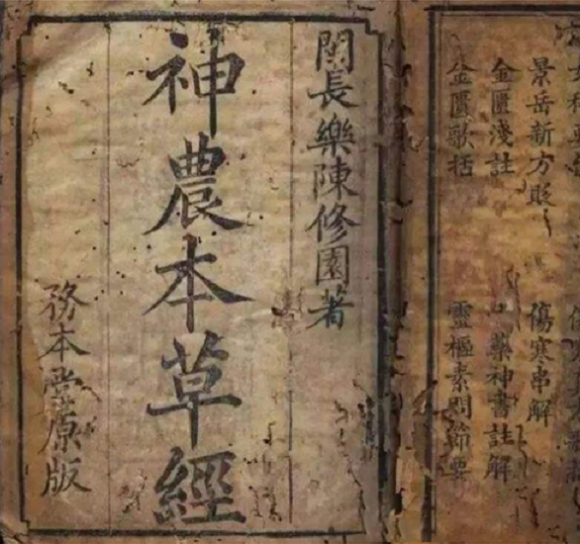 景岳新方砭
傷寒串解
金匱淺註
藥神書註解
金匱歌括
靈樞素問節要
閩長樂陳修園著
神農本草經
務本堂原版